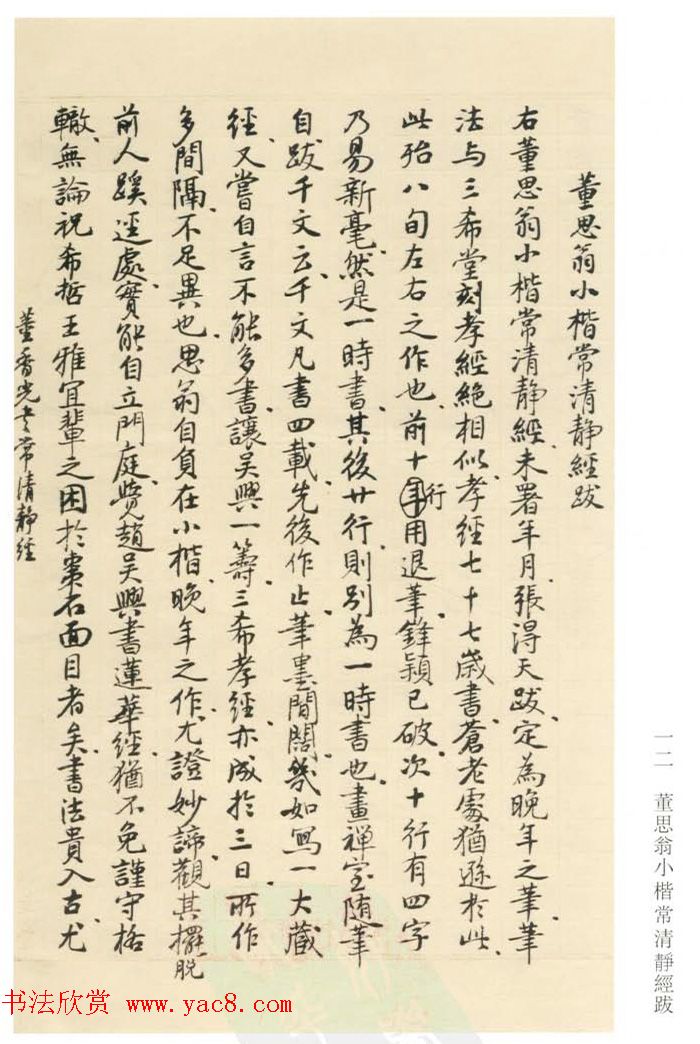 董思翁小楷常清靜經跋
右董思翁小楷常清靜經未署年月張淂天跋定為晚年之筆筆
法与三希堂刻孝經絕相似孝經七十七歲書蒼老處猶遜於此
此殆八旬左右之作也前十年行用退筆鋒穎已破次十行有四字
乃易新毫然是一時書其後廿行則別為一時書也畫禪室随筆
自跋千文云千文凡書四載先後作止筆墨間闊幾如寫一大藏
經又嘗自言不能多書讓吳興一籌三希孝經亦成於三日所作
多間隔不足異也思翁自負在小楷晚年之作尤證妙諦觀其擺脫
前人蹊逕處實能自立門庭覺趙吳興書蓮華經猶不免謹守格
轍無論祝希哲王雅宜輩之困於棗石面目者矣書法貴入古尤
董香光書常清靜經
一二 董思翁小楷常清靜經跋
书法欣赏 www.yac8.com